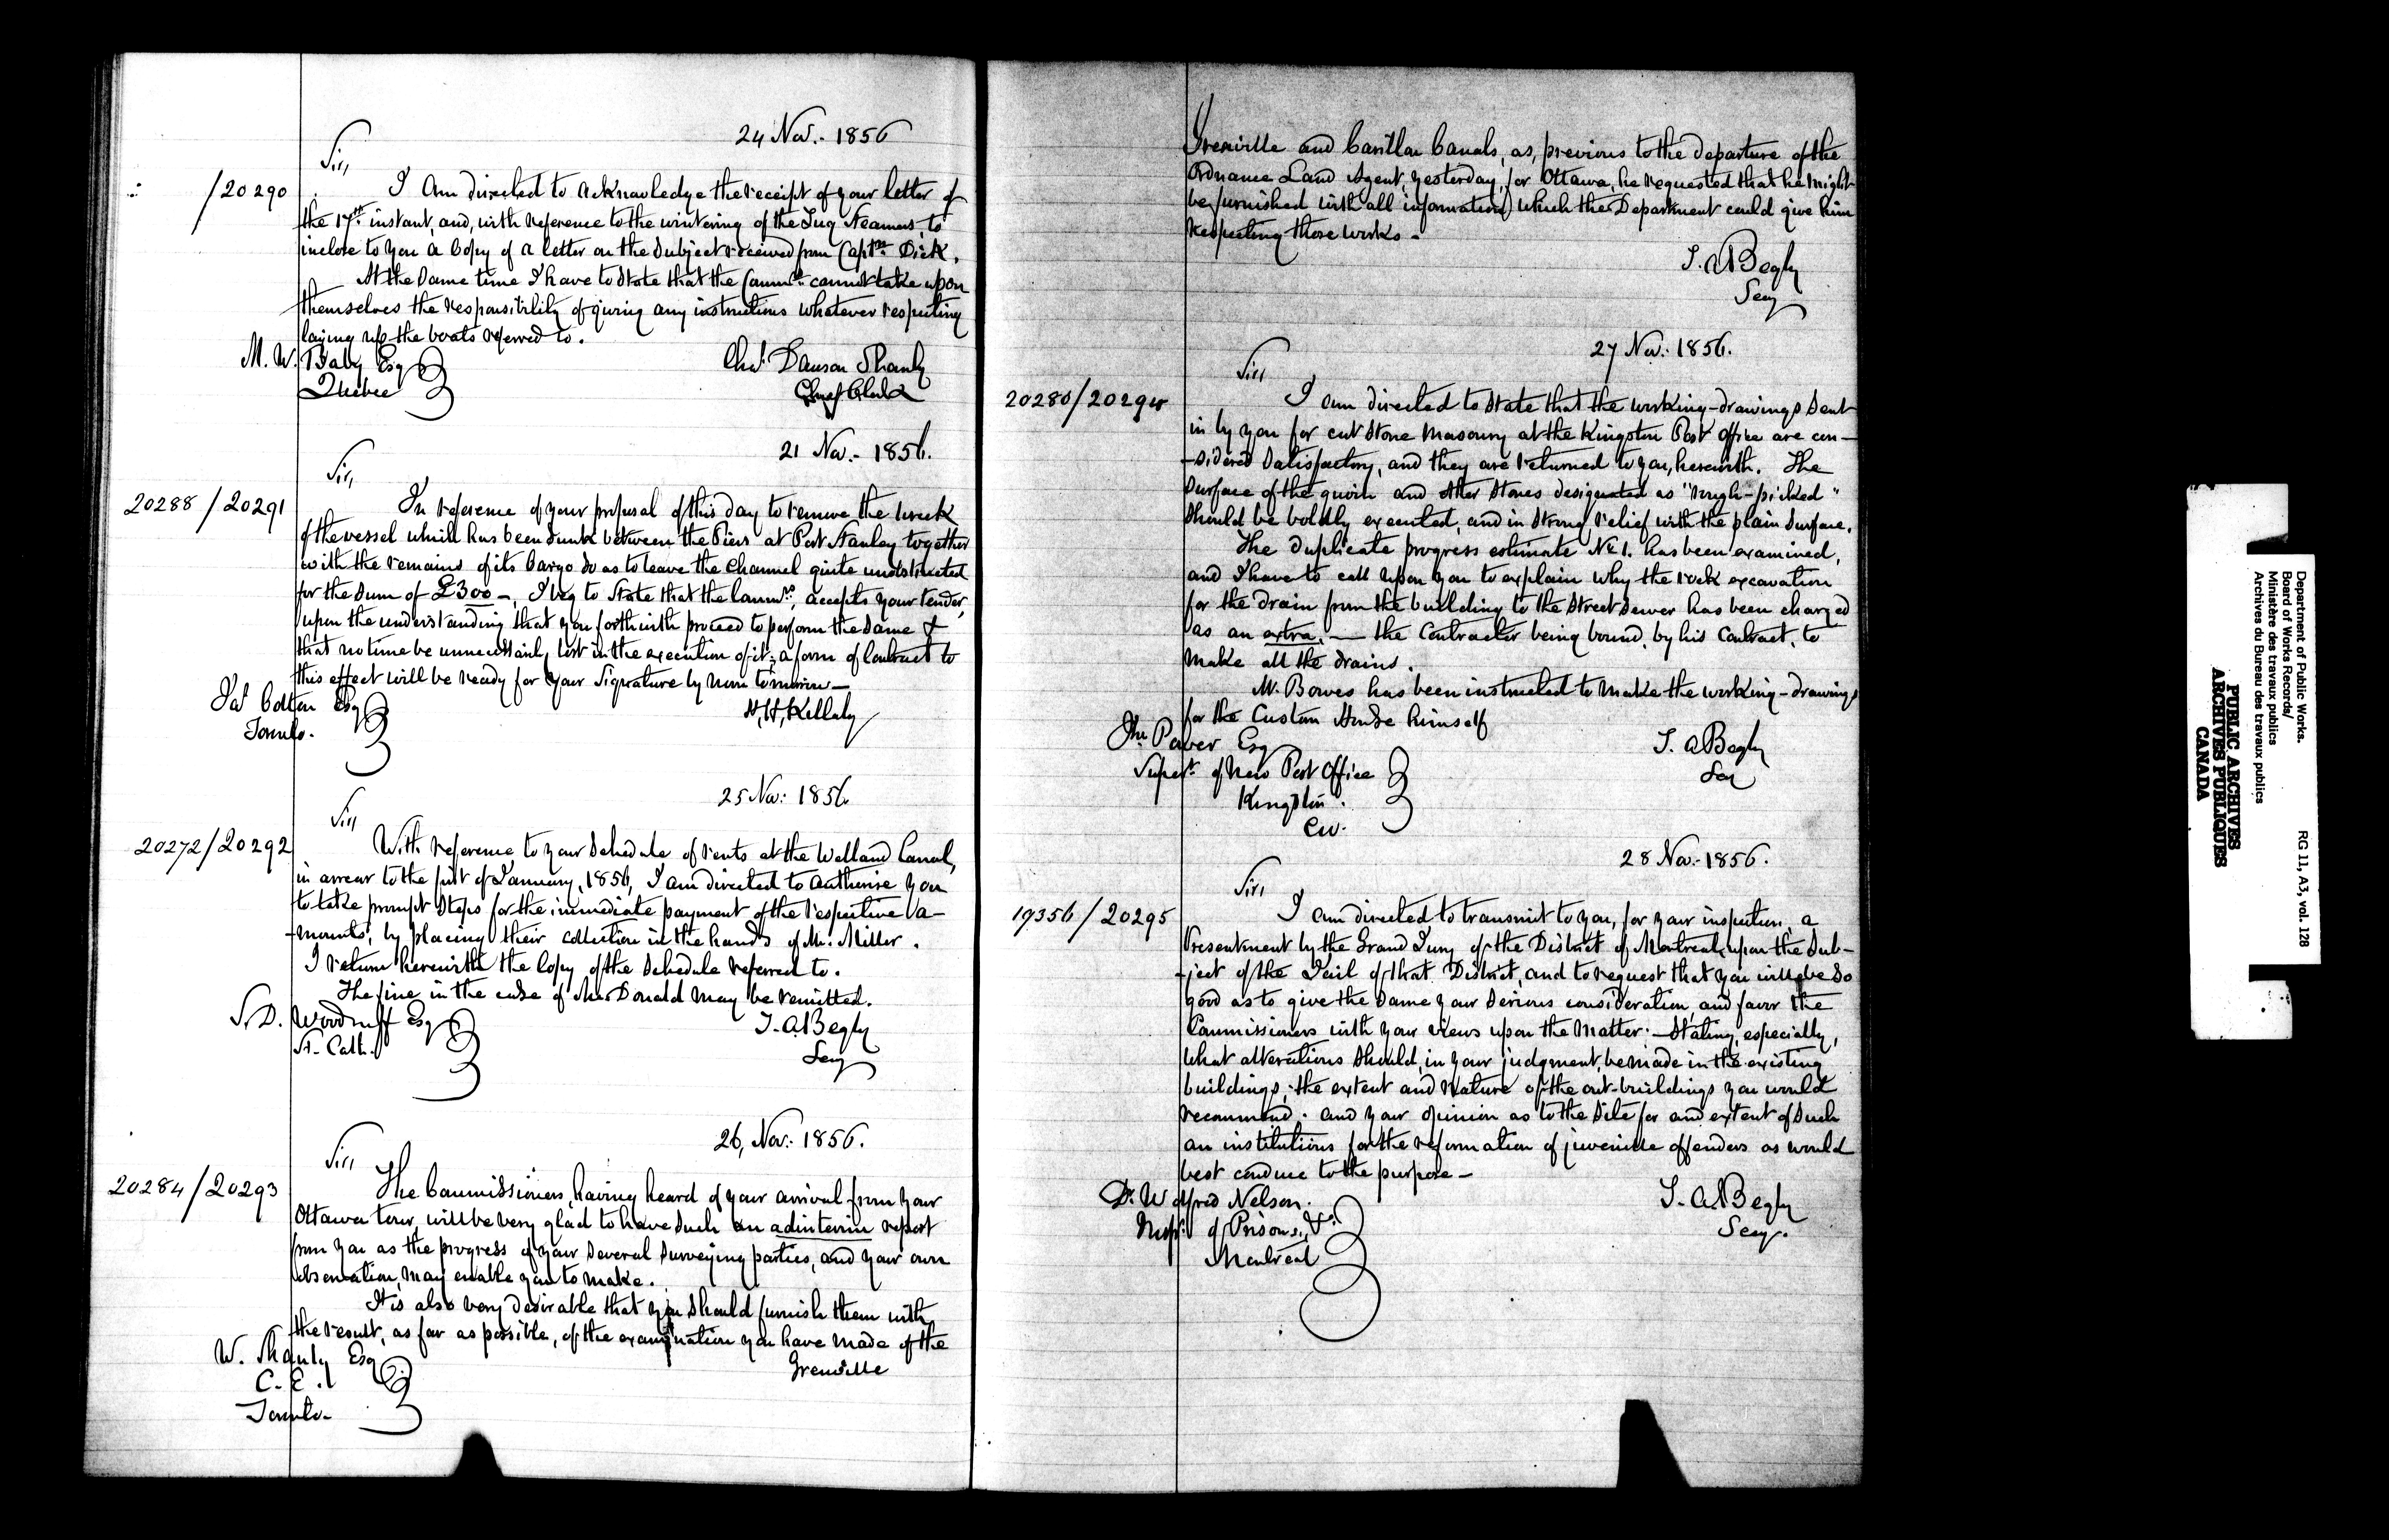 24 Nov.- 1856
Sir,
/20290
I am directed to acknowledge the receipt of your letter of
the 17th instant, and, with reference to the wintering of the Tug Steamers, to
inclose to you a Copy of a letter on the subject received from Captn Dick.
At the same time I have to state that the Commrs cannot take upon
themselves the responsibility of giving any instructions whatever respecting
laying up the boats referred to.
M. W. Baby Esq
Quebec
Chas Dawson Shanly
Chief Clerk
21 Nov.- 1856.
Sir,
20288/20291
In reference of your proposal of this day to remove the wreck
of the vessel which has been sunk between the Piers at Port Stanley together
with the remains of its Cargo so as to leave the Channel quite unobstructed
for the sum of £300 -, I beg to state that the Commrs, accepts your tender,
upon the understanding that you forthwith proceed to perform the same &
that no time be unnecessarily lost in the execution of it; a form of Contract to
this effect will be ready for your Signature by noon tomorrow -
Jas Cotton Esq
Toronto.
H,H,Killaly
25 Nov: 1856.
Sir,
20272/20292
With reference to your Schedule of rents at the Welland Canal,
in arrear to the first of January, 1856, I am directed to authorise you
to take prompt steps for the immediate payment of the respective a-
-mounts, by placing their collection in the hands of Mr. Miller.
I return herewith the Copy of the Schedule referred to.
The fine in the case of McDonald may be remitted.
S. D. Woodruff Esq
St. Cath.
T. A Begly
Secy
26, Nov: 1856.
Sir,
20284/20293
The Commissioners, having heard of your arrival from your
Ottawa tour, will be very glad to have such an ad interim report
from you as the progress of your several surveying parties, and your own
observation, may enable you to make.
It is also very desirable that you should furnish them with
the result, as far as possible, of the examination you have made of the
Grenville
W. Shanly Esq
C. E.
Toronto-
Grenville and Carillon Canals, as, previous to the departure of the
Ordnance Land Agent, yesterday, for Ottawa, he requested that he might
be furnished with all information which the Department could give him
respecting those works -
T. A Begly
Secy
27 Nov: 1856.
Sir,
20280/20294
I am directed to state that the working-drawings sent
in by you for cut stone masonry at the Kingston Post Office are con-
-sidered satisfactory, and they are returned to you, herewith. The
surface of the quoin and other stones designated as "rough-picked"
should be boldly executed, and in strong relief with the plain surface.
The duplicate progress estimate No 1. has been examined,
and I have to call upon you to explain why the rock excavation
for the drain from the building to the street sewer has been charged
as an extra, - the Contractor being bound, by his Contract, to
make all the drains.
Mr. Bowes has been instructed to make the working-drawings
for the Custom House himself
Jn. Power Esq
Supert of New Post Office
Kingston.
C.W.
T. A Begly
Secy
28 Nov.- 1856.
Sir,
19356/20295
I am directed to transmit to you, for your inspection, a
Presentment by the Grand Jury of the District of Montreal, upon the sub-
-ject of the Jail of that District, and to request that you will be so
good as to give the same your serious consideration, and favor the
Commissioners with your views upon the matter: - Stating, especially,
what alterations should, in your judgment, be made in the existing
buildings; the extent and nature of the out-buildings you would
recommend. and your opinion as to the site for and extent of such
an institutions for the reformation of juvenile offenders as would
best conduce to the purpose -
Dr. Wolfred Nelson.
Inspr. of Prisons, &c.
Montreal
T. A. Begly
Secy.
Department of Public Works.
Board of Works Records/
Ministère des travaux publics
Archives du Bureau des travaux publics
RG 11, A3, vol. 128
PUBLIC ARCHIVES
ARCHIVES PUBLIQUES
CANADA